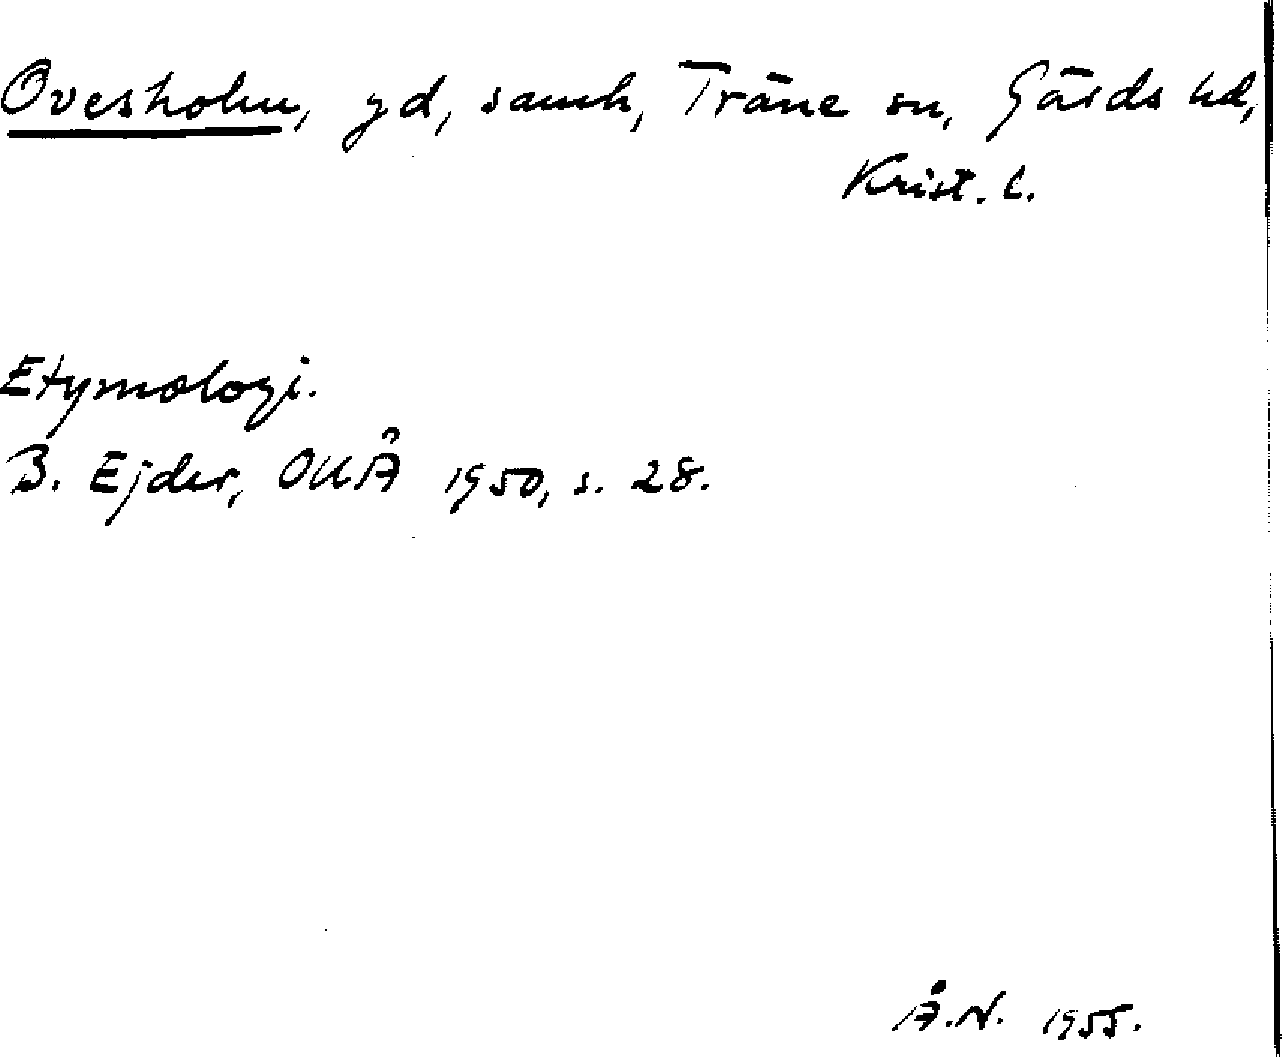 Ovesholm, gd, samh, Träne sn, Gärds hd,
Krist. l.
Etymologi.
B. Ejder, OUÅ 1950, s. 28.
Å.N. 1955.